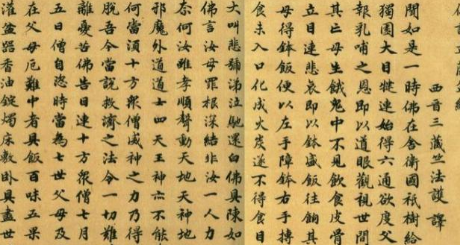 西晉三藏竺法護譯
聞如是一時佛在舍衛國祇樹給
獨園大目犍連始得六通欲度父
報乳哺之恩即以道眼觀視世
其亡母生餓鬼中不見飲食皮骨
立目連悲哀即以鉢盛飯往餉其
母得鉢飯便以左手障鉢右手摶
食未入口化成火炭遂不得食目
大叫悲號涕泣馳還白佛具陳如
佛言汝母罪根深結非汝一人力
奈何汝雖孝順聲動天地天神地
邪魔外道道士四天王神亦不能
何當須十方衆僧威神之力乃得
脫吾今當說救濟之法令一切難
離憂苦佛告目連十方衆僧七月
五日僧自恣時當為七世父母及
在父母厄難中者具飯百味五果
灌盆器香油錠燭床敷臥具盡世